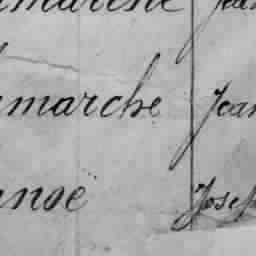 marche Jean
marche Jean
noë Josep